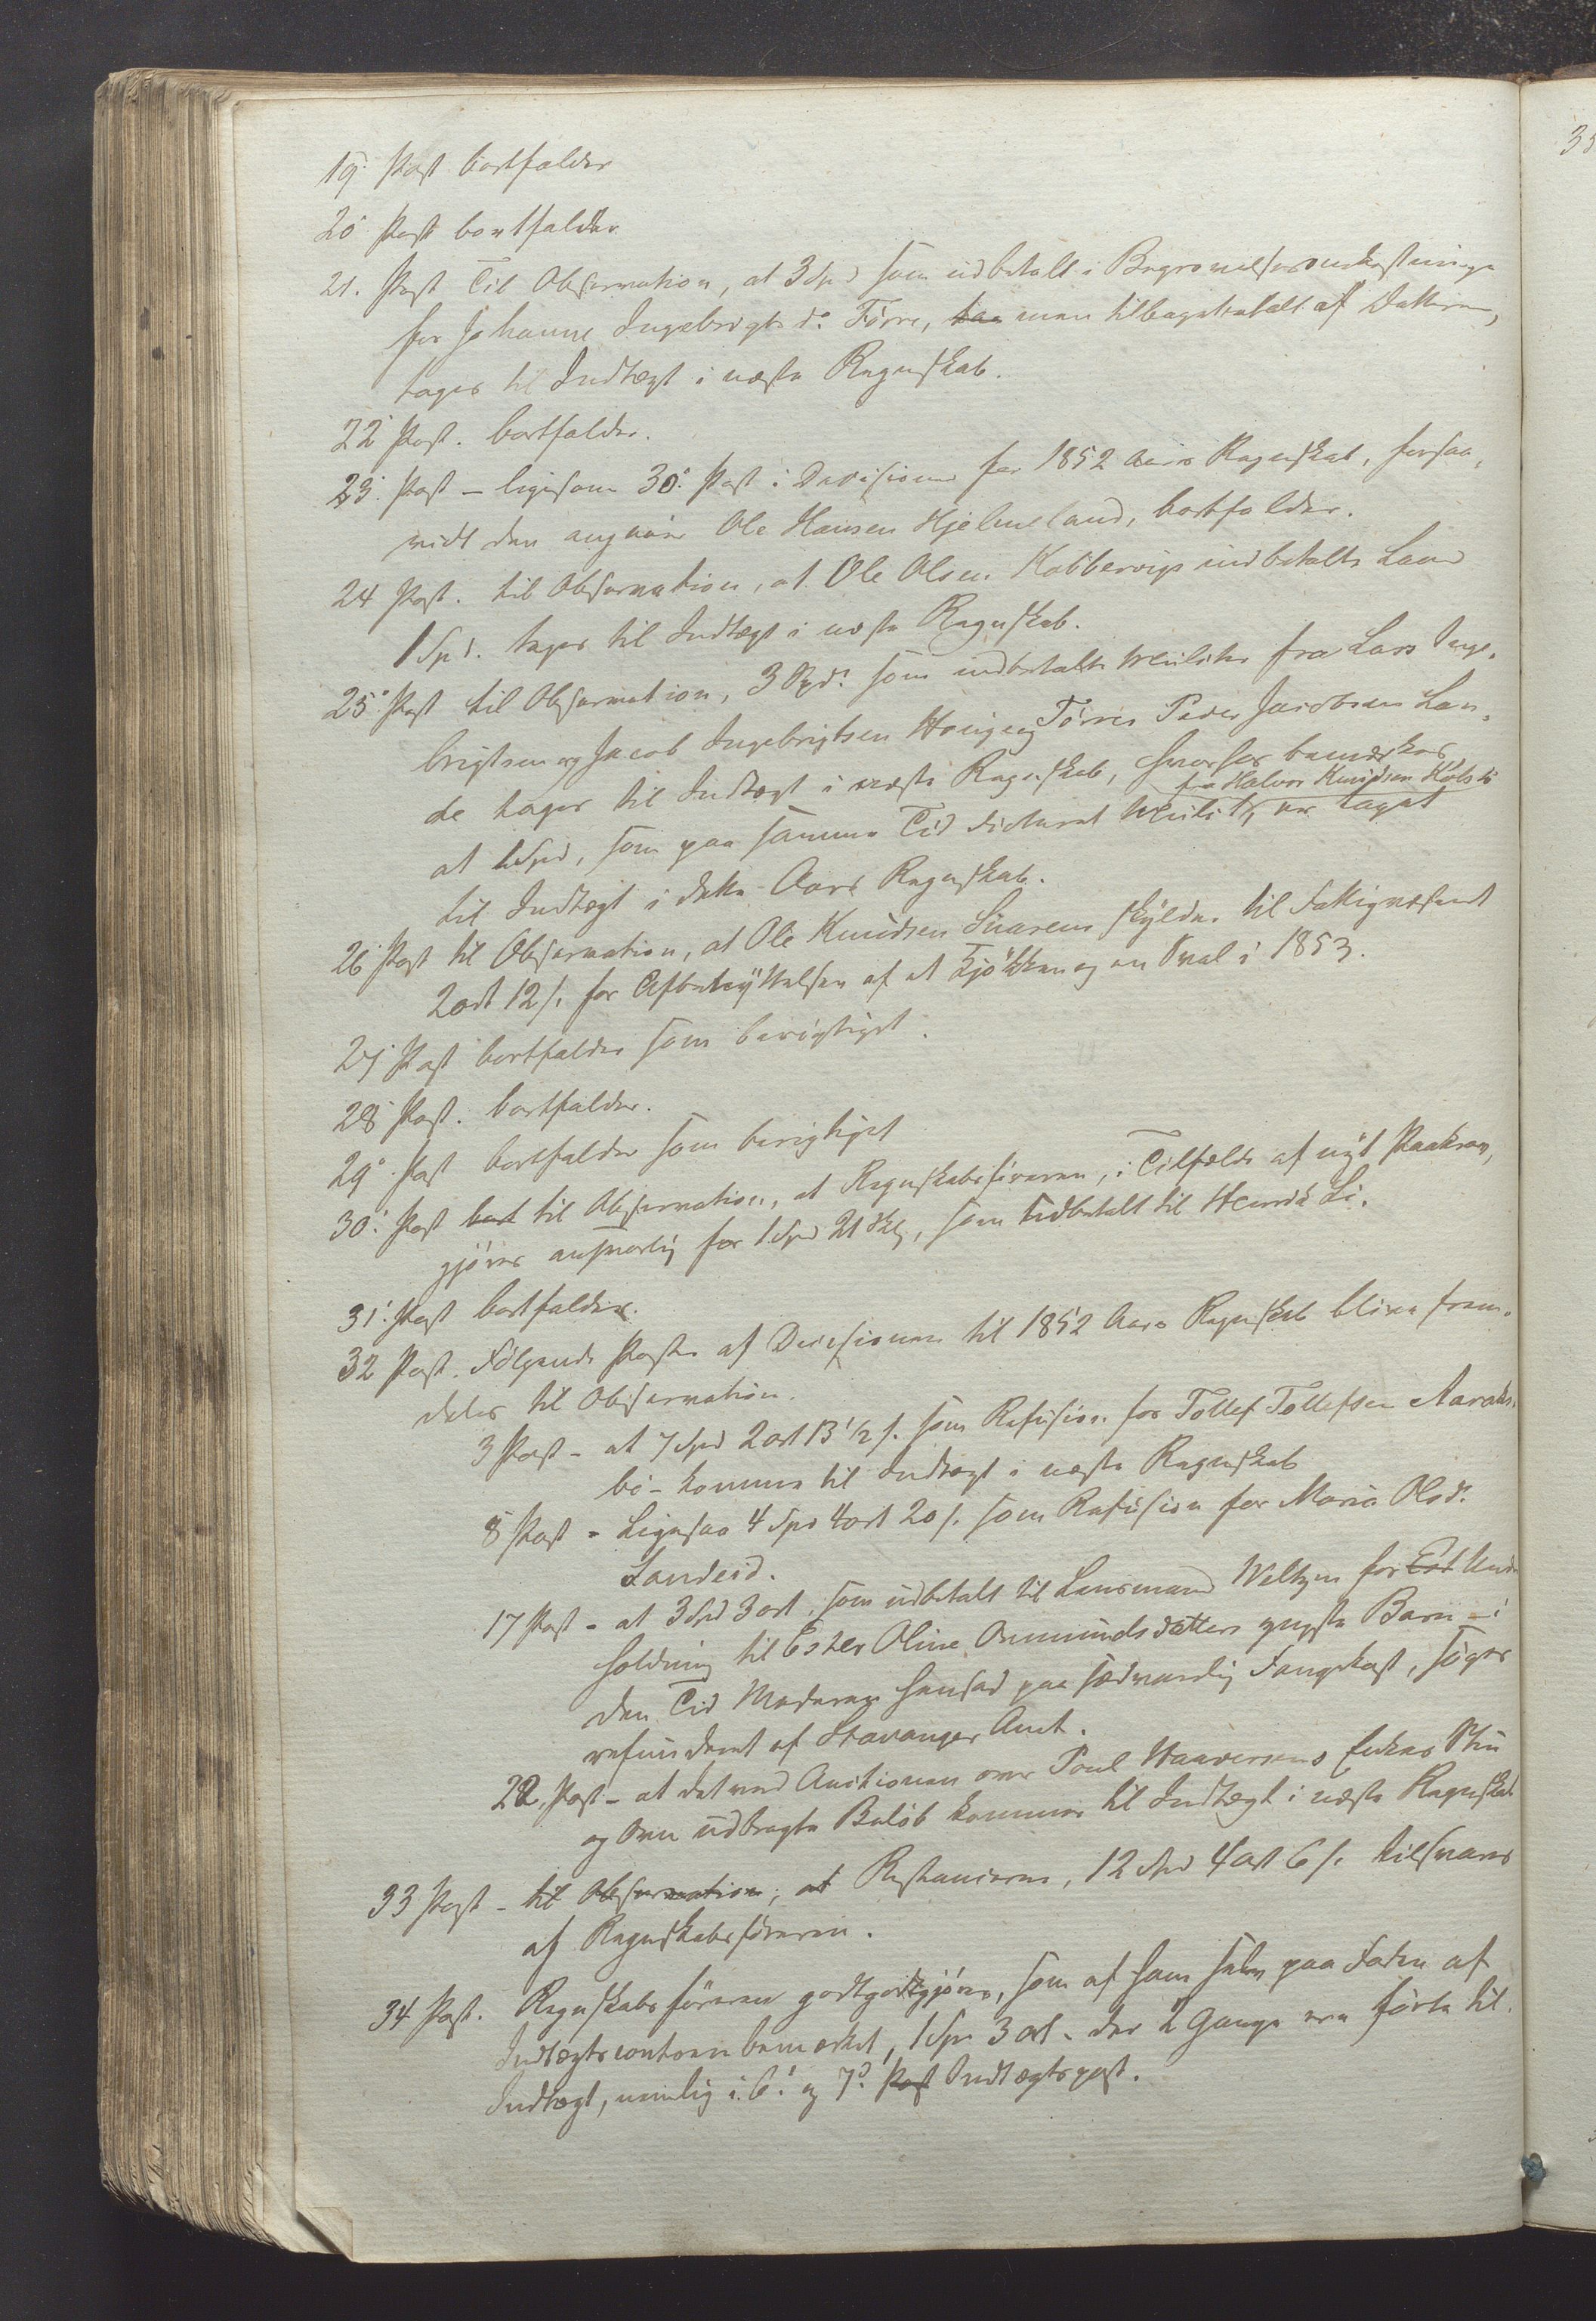 19. Post bortfalder
20 Post bortfalder
21. Post Til Observation, at 3 Spd som udbetalt i Begravelsesomkostninge
for Johanne Ingebrigtsd. Førre, men tilbagebetalt af Datteren,
tages til Indtægt i næste Regnskab.
22 Post. bortfalder.
23. Post – ligesom 30. Post i Decisionen for 1852 Aars Regnskab, forsaa-
vidt den angaar Ole Hansen Hjelmeland, bortfalder.
24 Post. til Observation, at Ole Olsen Kobbervigs indbetalte Laan
1 Spd. tages til Indtægt i næste Regnskab.
25. Post til Observation, 3 Spd. som indbetalte Mulkter fra Lars Inge-
brigtsen og Jacob Ingebrigtsen og Tørres Peder Jacobsen Lan-
de tages til Indtægt i næste Regnskab, hvorfor bemærkes
at 1 Spd, som paa samme Tid dicteret Mulkt, fra Halvor Knudsen er taget
til Indtægt i dette Aars Regnskab.
26. Post til Observation, at Ole Knudsen skylder til Fattigvæsenet
2 ort 12 s. for Afbenyttelsen af et Kjøkken og en Sval i 1853.
27. Post bortfalder som berigtiget.
28 Post. bortfalder.
29. Post bortfalder som berigtiget
30. Post bort til Observation, at Regnskabsføreren, i Tilfælde af nyt Paakrav,
gjøres ansvarlig for 1 Spd 21 Skl, som udbetalt til Henrik Li.
31. Post bortfalder.
32 Post. Følgende Poster af Decisionen til 1852 Aars Regnskab blive frem-
deles til Observation.
3 Post – at 7 Spd 2 ort 13 1/2 s. som Refusion for Tollef Tollefsen Aarak-
bø – komme til Indtægt i næste Regnskab
8 Post – Ligesaa 4 Spd 4 ort 20 s. som Refusion for Maria Olsd.
Sandeid.
17 Post – at 3 Spd 3 ort, som udbetalt til Lensmand Weltzin for Under
holdning til Ester Oline Ommundsdatters yngste Barn – i
den Tid Moderen hensad paa sædvanlig Fangekost, søges
refunderet af Stavanger Amt.
22. Post – at det ved Auctionen over Poul Haaversens Enkes
og udbragte Beløb kommer til Indtægt i næste Regnskab
33 Post – til Observation, at Restancerne, 12 Spd 4 ort 6 s. tilsvares
af Regnskabsføreren.
34 Post. Regnskabsføreren godtgjøres, som af ham selv paa Foden af
Indtægtscontoen bemærket, 1 Spd 3 ort – der 2 Gange ere førte til
Indtægt, nemlig i 6. og 7. Post Indtægtspost.